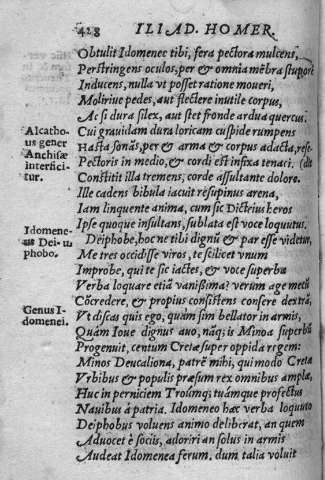 428 ILIAD. HOMER.
Obtulit Idomenee tibi, fera pectora mulcens,
Perstringens oculos, per & omnia mẽbra stuporẽ
Inducens, nulla vt posset ratione moueri,
Moliriue pedes, aut flectere inutile corpus,
Ac si dura silex, aut stet fronde ardua quercus.
Alcatho-
us gener
Anchisæ
interfici-
tur.
Cui grauidam dura loricam cuspide rumpens
Hasta sonãs, per & arma & corpus adacta, rese-
Pectoris in medio, & cordi est infixa tenaci. (dit
Constitit illa tremens, corde assultante dolore.
Ille cadens bibula iacuit resupinus arena,
Iam linquente anima, cum sic Dictæius heros
Ipse quoque insultans, sublata est voce loquutus.
Idomene-
us Dei-
phobo.
Deiphobe, hoc ne tibi dignũ & par esse videtur,
Me tres occidisse viros, te scilicet vnum
Improbe, qui te sic iactes, & voce superba
Verba loquare etiã vanissima? verum age mecũ
Cõcredere, & propius consistens consere dextrã,
Genus I-
domenei.
Vt discas quis ego, quàm sim bellator in armis,
Quàm Ioue dignus auo, nãq; is Minoa superbũ
Progenuit, centum Cretæ super oppida regem:
Minos Deucaliona, patrẽ mihi, qui modo Cretæ
Vrbibus & populis præsum rex omnibus amplæ,
Huc in perniciem Troũmq; tuámque profectus
Nauibus à patria. Idomeneo hæc verba loquuto
Deiphobus voluens animo deliberat, an quem
Aduocet è sociis, adoriri an solus in armis
Audeat Idomenea ferum. dum talia voluit